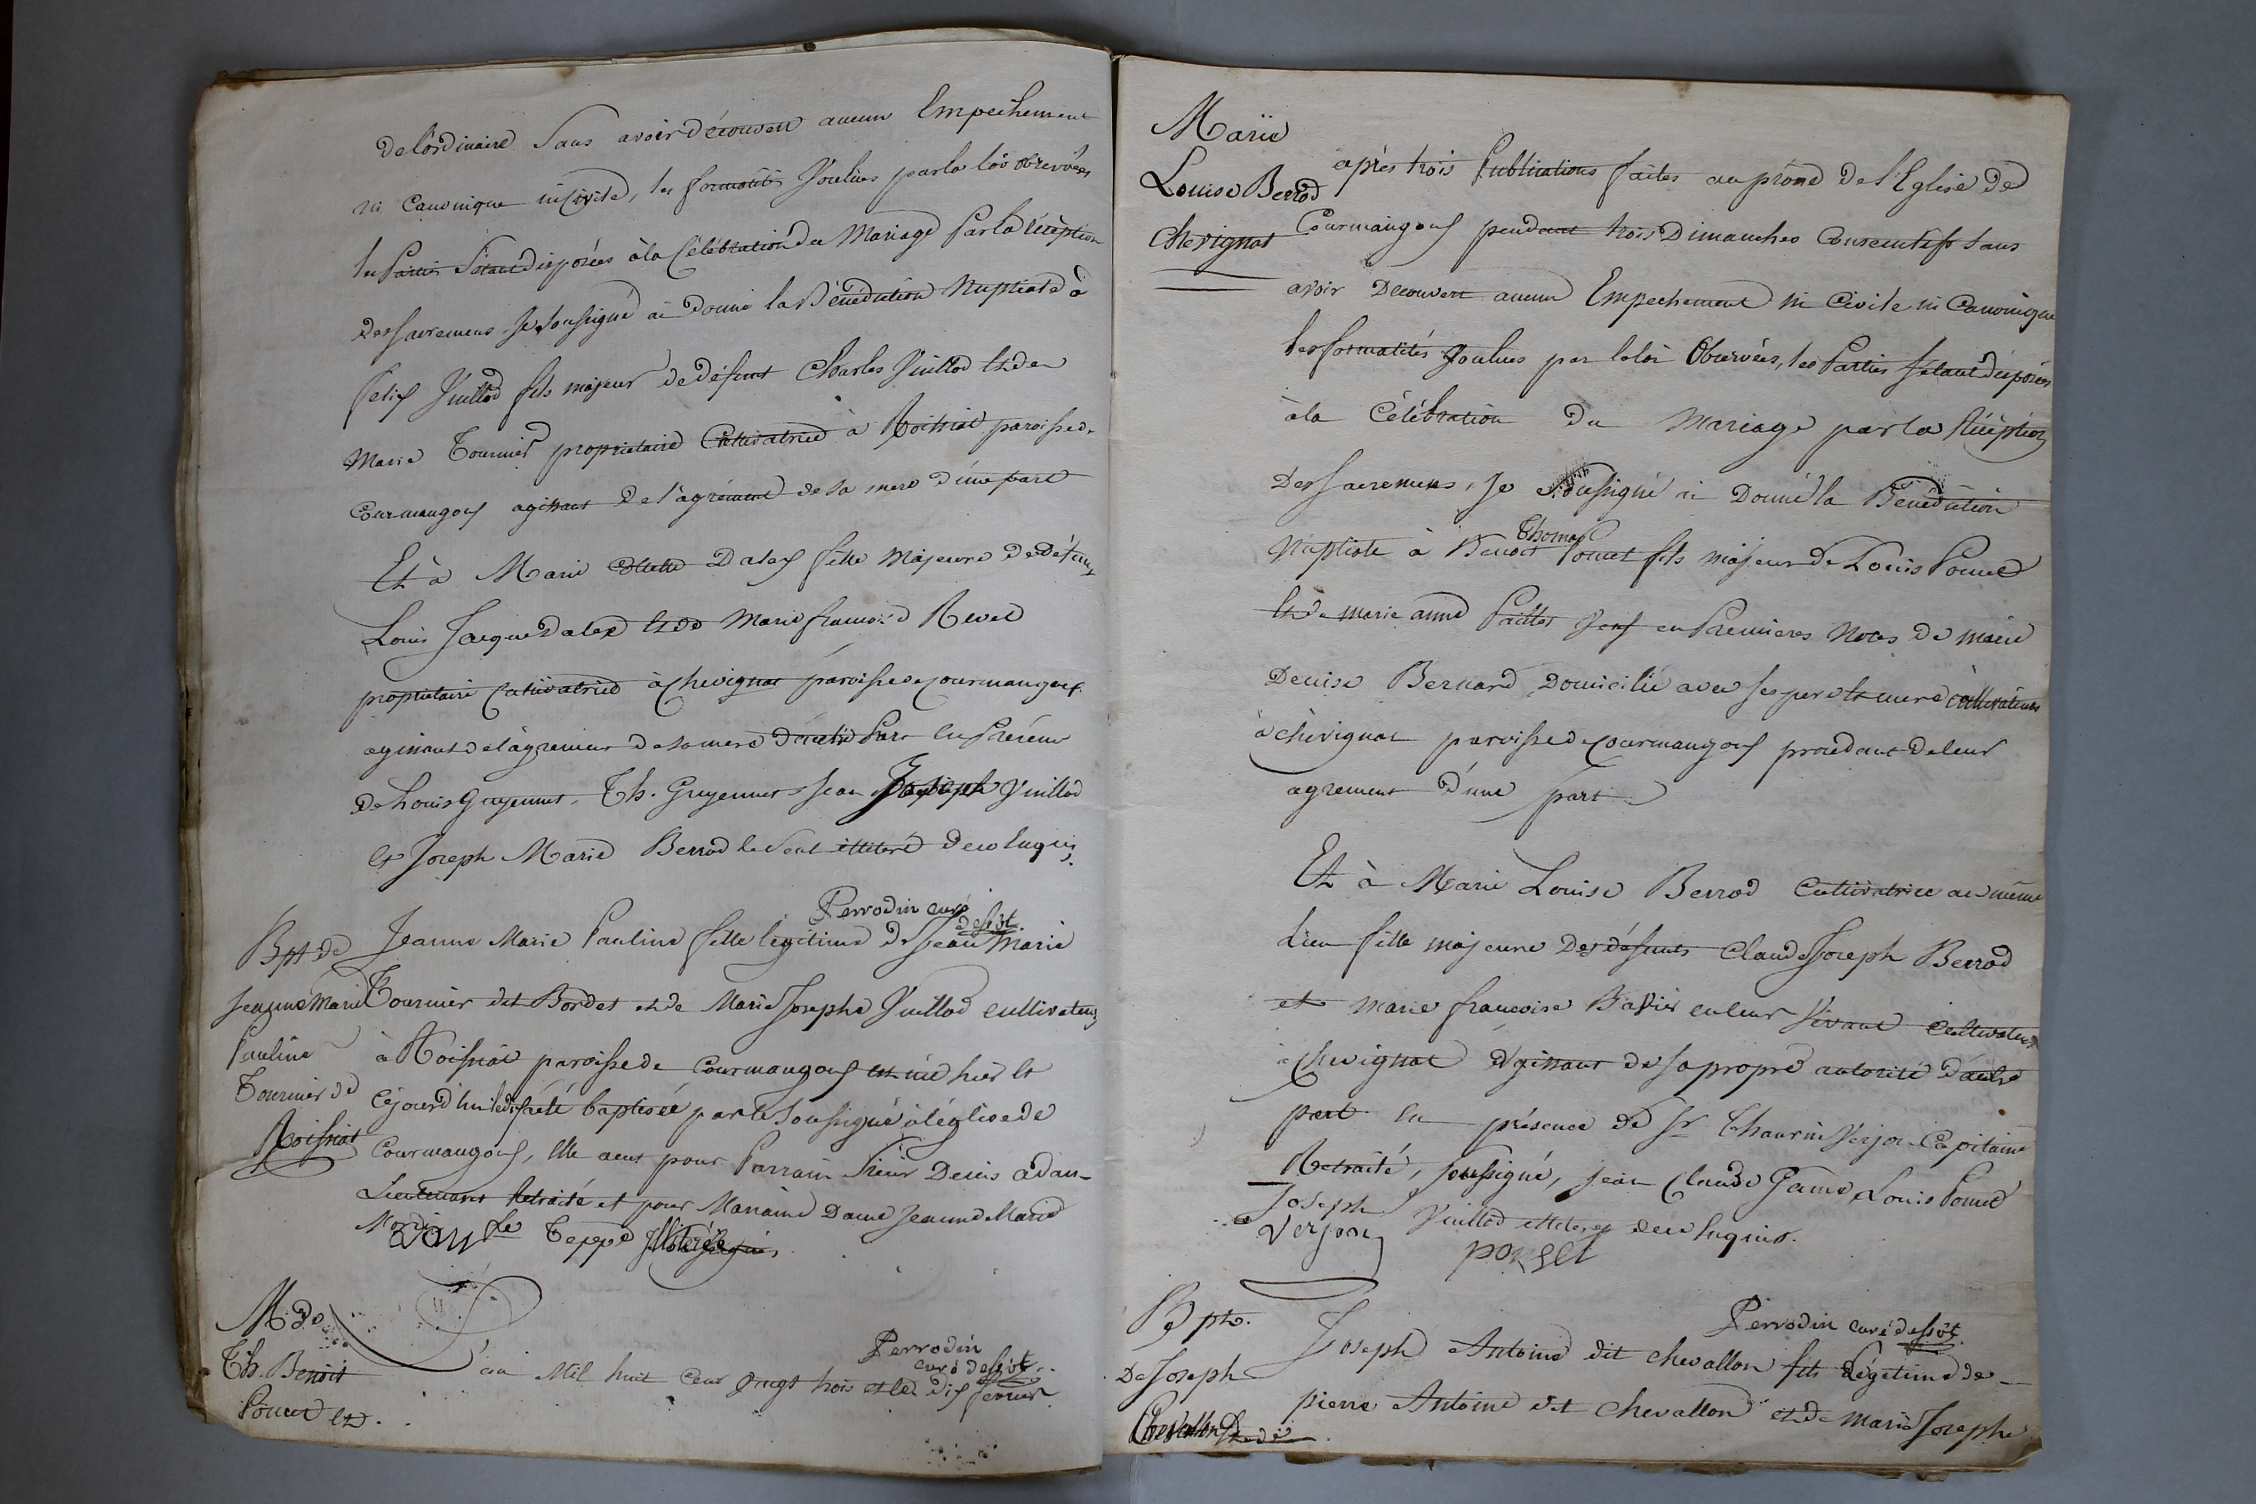 De l'ordinaire Sans avoir découvert aucun Empechement
ni Canonique ni Civile, les formalités Voulues par la loi observées
les Parties S'étant disposées à la Célébration du Mariage Par la réception
des Sacremens Je Soussigné ai donné la Bénédiction Nuptiale à
Felix Vuillod fils majeur de défunt Charles Vuillod Et de
Marie Tournier propriétaire Cultivatrice à Roissiat paroisse de
Courmangoux agissant de l'agrément de sa mere d'une part
Et à Marie Dalex fille Majeure de défunt
Louis Jacque Dalex Et de Marie françoise Revel
propriétaire Cultivatrice à Chevignat paroisse de Courmangoux
agissant de l'agrément de sa mere d'autre Part En Présence
de Louis Guyennet, Th. Guyennet Jean Joseph Vuillod
Et Joseph Marie Berrod le Seul illiteré de ce Enquis
Perrodin curé
desst.
Bpt de
Jeanne Marie
Pauline
Tournier de
Roissiat
Jeanne Marie Pauline fille légitime de Jean Marie
Tournier dit Bordet et de Marie Josephe Vuillod cultivateurs
à Roissiat paroisse de Courmangoux est née hier Et
Cejourd'hui le dix a été baptisée par le Soussigné à l'église de
Courmangoux, Elle a eu pour Parrain Sieur Denis adam
Lieutenant Retraité et pour Marraine Dame Jeanne Marie
Teppe Illiterée
adam
Perrodin
curé desst.
M. de
Th. Benoit
Pomet et
L'an Mil huit Cent Vingt trois et le dix fevrier
Marie
Louise Berrod
Chevignat
après trois Publications faites au prône de l'Eglise de
Courmangoux pendant trois Dimanches Consecutifs Sans
avoir Decouvert aucun Empechement ni Civile ni Canonique
les formalités Voulues par la loi Observées, les Parties S'etant disposées
à la Célébration Du Mariage par la Réception
Des Sacremens, Je Soussigné ai Donné la Bénédiction
Nuptiale à Benoit Thomas Pomet fils majeur de Louis Pomet
Et de marie anne Paillet Veuf en Premieres Noces de marie
Denise Bernard Domicilié avec ses pere Et mere cultivateurs
à chevignat paroisse de Courmangoux procedant de leur
agrement d'une part
Et à Marie Louise Berrod Cultivatrice au même
Lieu fille majeure Des défunts Claude Joseph Berrod
et Marie françoise Bavier en leur Vivant Cultivateurs
à Chevignat agissant de sa propre autorité d'autre
part En présence de Sr Verjon Capitaine
Retraité, soussigné, Jean Claude Game, Louis Pomet
Joseph Vuillod illiteres de ce Enquis.
Verjon
ponset
Perrodin curé desst.
Bpt.
De Joseph
Chevallon
Joseph Antoine dit chevallon fils Légitime de
pierre Antoine dit chevallon et de Marie Josephe